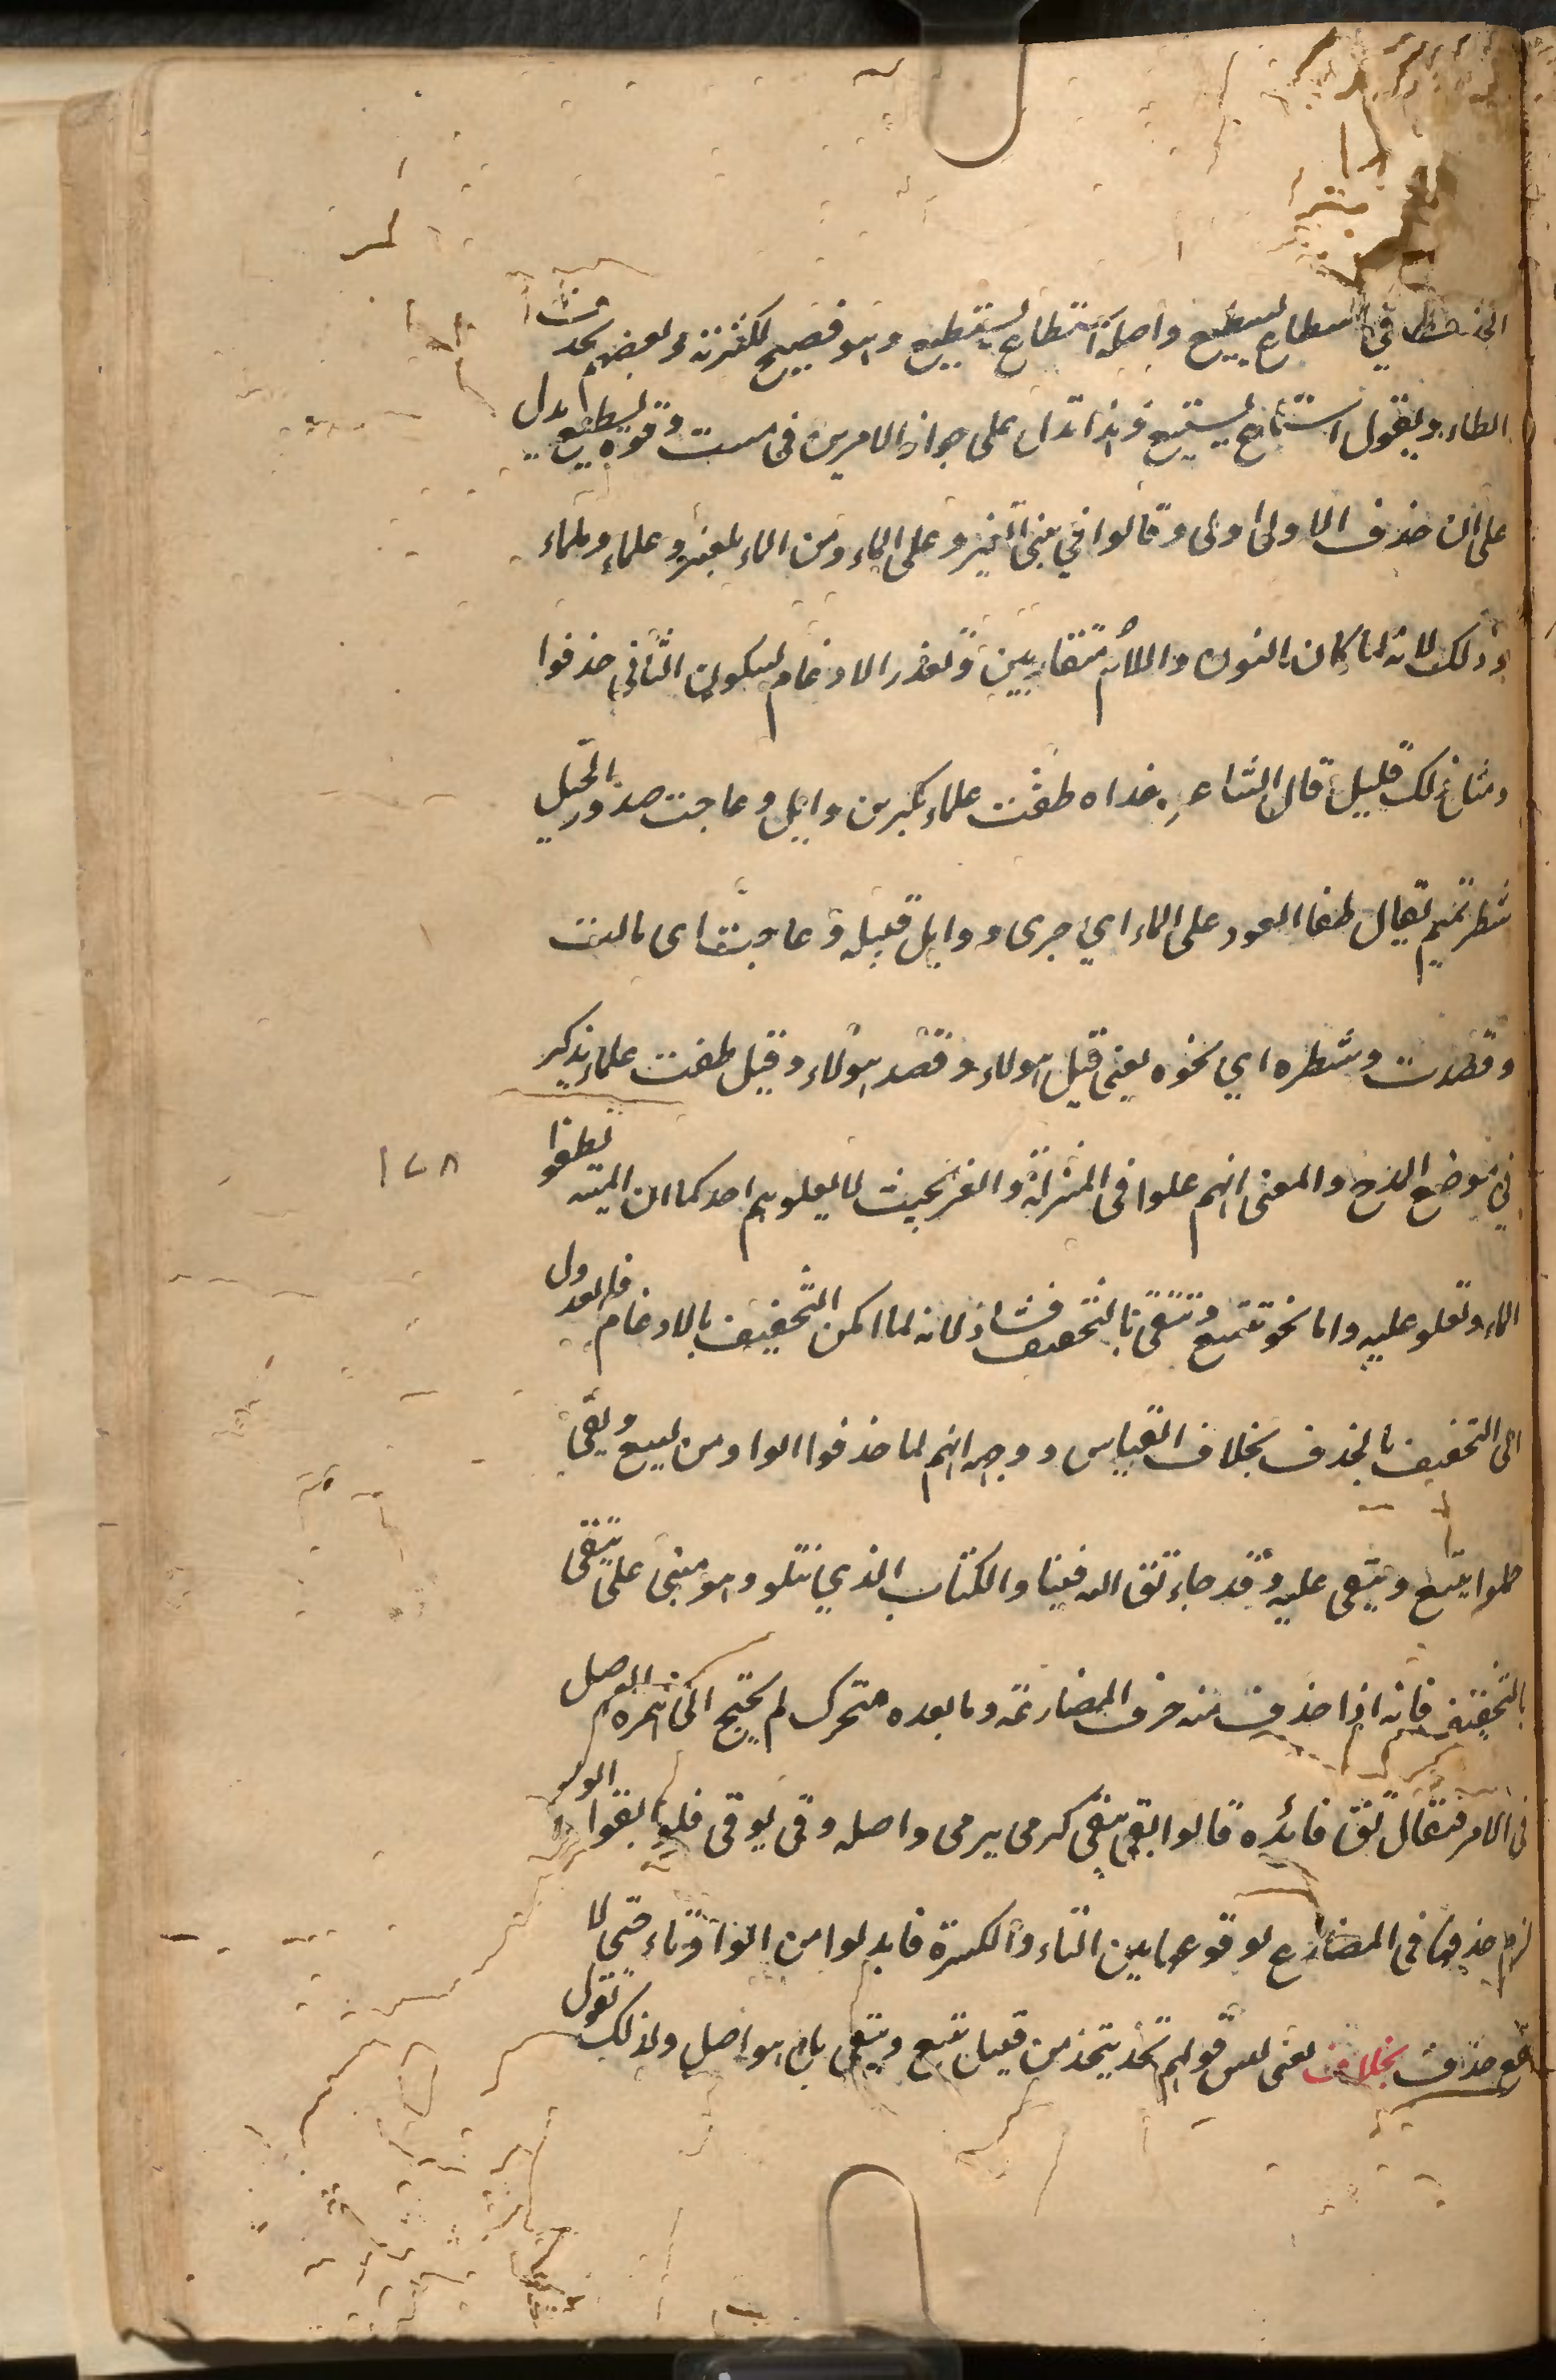 في اسطاع يسطيع واصله استطاع يستطيع وهو فصيح لكثرته وبعضهم يحذف
الطاء ويقول استاع يستيع فهذا تدل على جواز الامرين في مست وقوله يسطيع يدل
على ان حذف الاولى اولى وقالوا في بني العنبر وعلى الماء ومن الماء بلعنبر وعلماء وملماء
وذلك لانه لما كان النون واللام متقاربين وتعذر الادغام لسكون الثاني حذفوا
ومثل ذلك قليل قال الشاعر غداه طفت علماء بكر بن وايل وعاجت صدور الخيل
شطر تميم يقال طفا العود على الماء اي جرى ووايل قبيله وعاجت اى مالت
وقصدت وشطره اي نحوه يعني قيل هولاء وقصد هولاء وقيل طفت علماء يذكر
في موضع المدح والمعنى انهم علوا في المنزلة والعز بحيث لا يعلوهم احد كما ان الميته تطفوا
١٢٨
الماء وتعلو عليه واما نحو تتسع وتتقى بالتخفيف فشاذ لانه لما امكن التخفيف بالادغام فالعدول
الى التخفيف بالحذف بخلاف القياس ووجهه انهم لما حذفوا الواو من يسع ويقي
حملوا يتسع ويتقى عليه وقد جاء تق الله فينا والكتاب الذي نتلو وهو مبني على يتقى
بالتخفيف فانه اذا حذف منه حرف المضارعة وما بعده متحرك لم يحتج الى همزه الوصل
في الامر فيقال تق فائده قالوا تقى يتقى كرمى يرمى واصله وقى يوقى فلو ابقوا الواو
لزم حذفها في المضارع لوقوعها بين التاء والكسرة فابدلوا من الواو تاء حتى لا
يقع حذف بخلاف يعني ليس قولهم تخذ يتخذ من قبيل يتسع ويتقي بل هو اصل ولذلك تقول